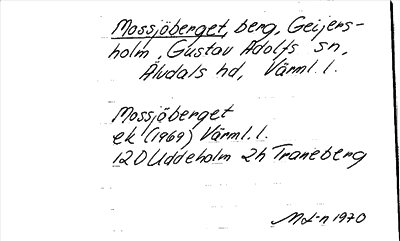 Mossjöberget, berg, Geijers-
holm, Gustav Adolfs sn,
Älvdals hd, Värml. l.
Mossjöberget
ek (1969) Värml. l.
12 D Uddeholm 2h Traneberg
1970